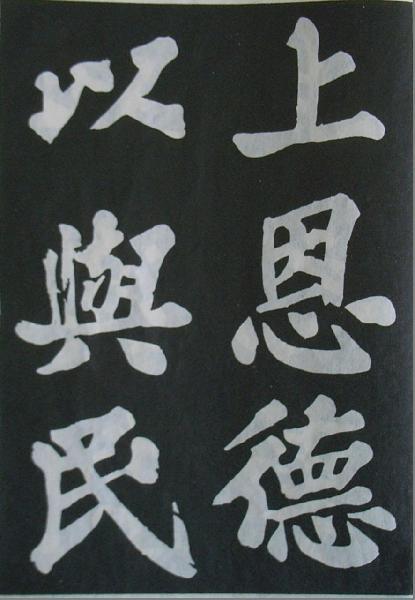 上恩德
以與民